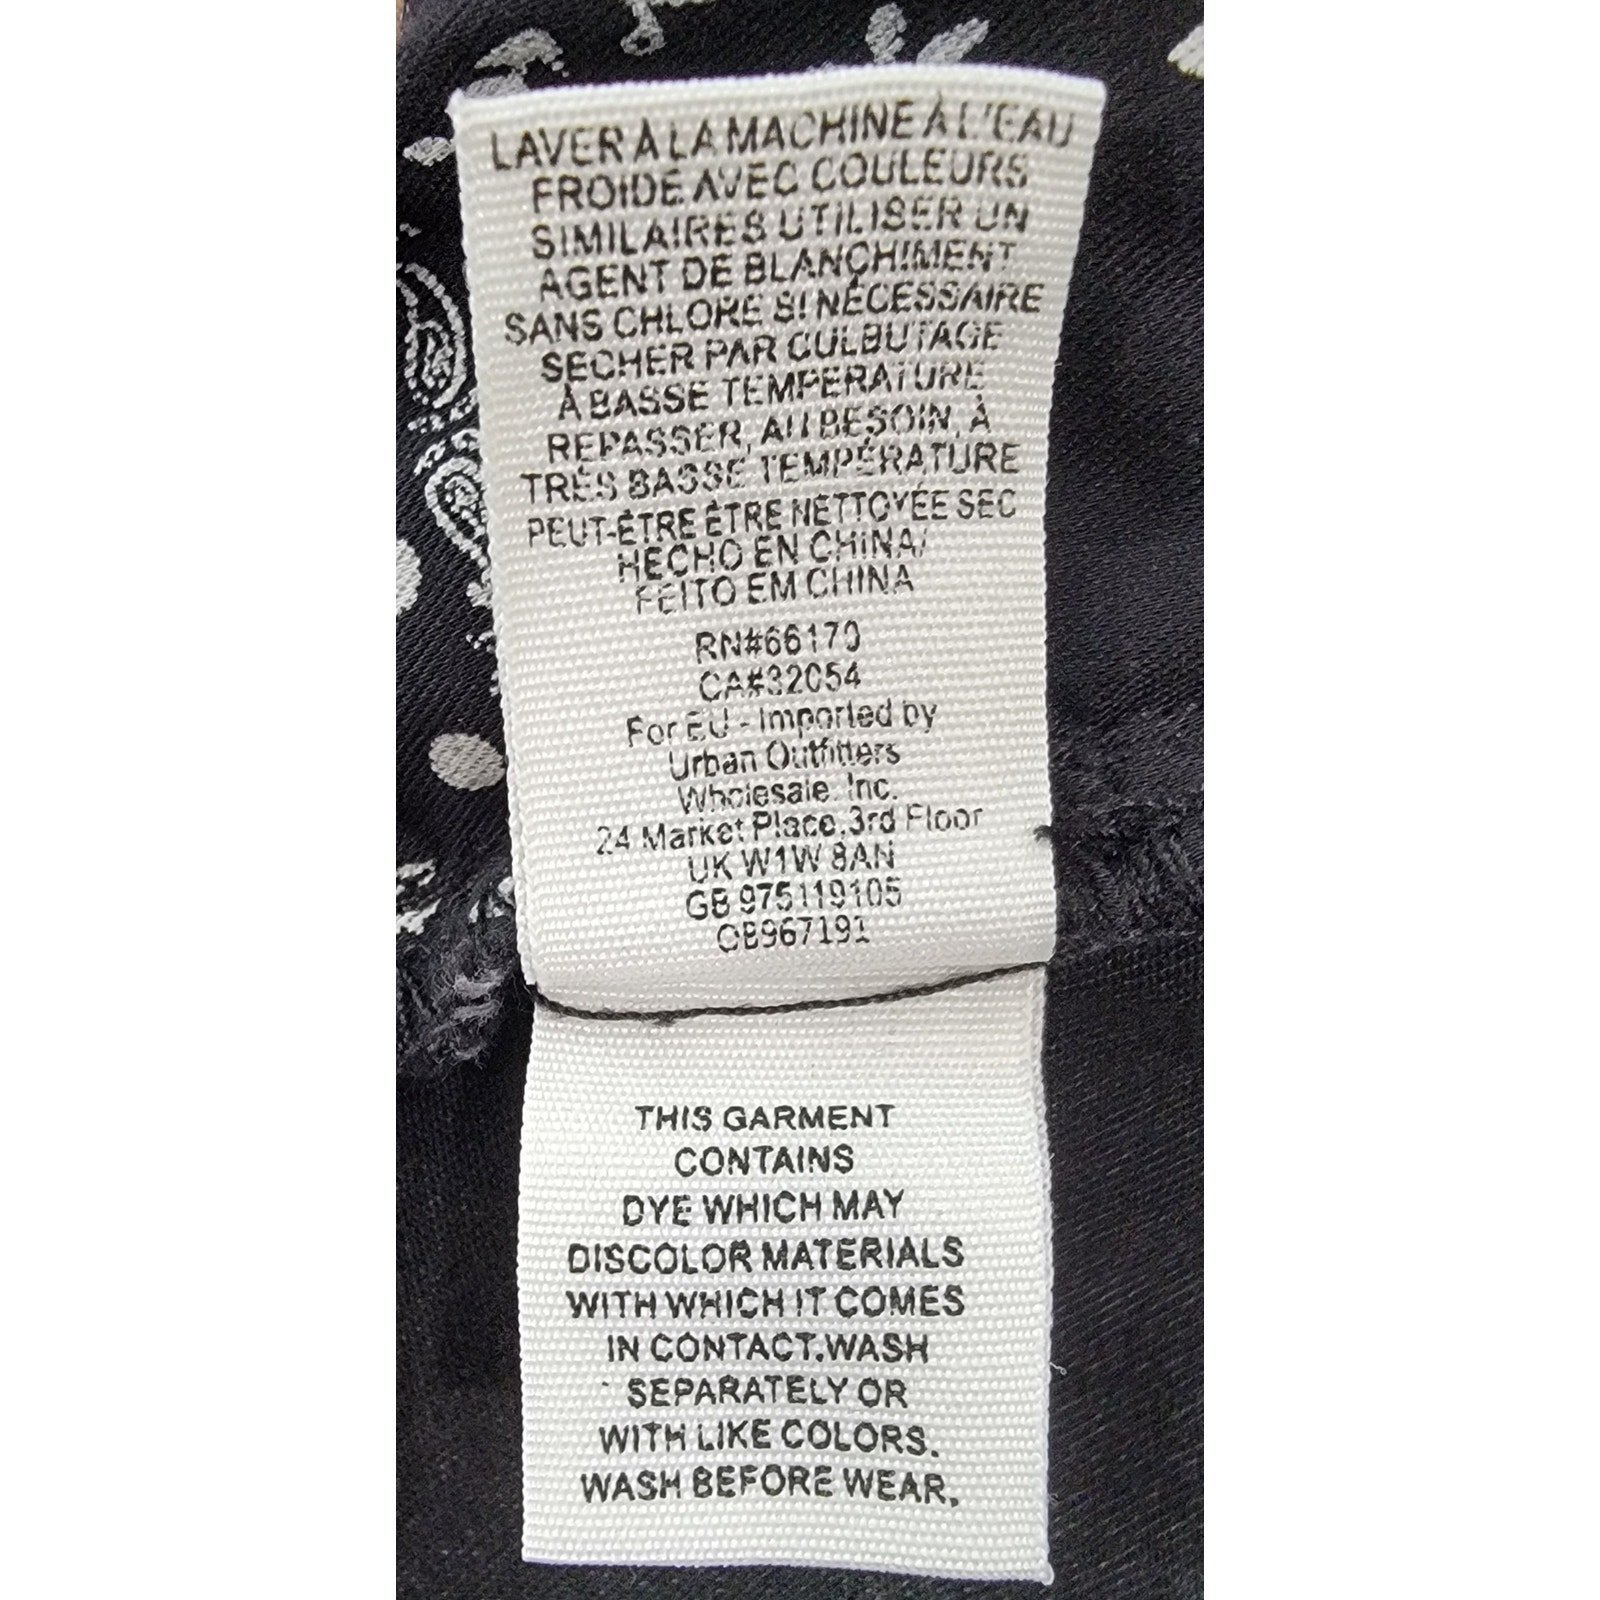 LAVER À LA MACHINE À L'EAU
FROIDE AVEC COULEURS
SIMILAIRES UTILISER UN
AGENT DE BLANCHIMENT
SANS CHLORE SI NÉCESSAIRE
SECHER PAR CULBUTAGE
À BASSE TEMPERATURE
REPASSER, AU BESOIN, À
TRÈS BASSE TEMPÉRATURE
PEUT-ÊTRE ÊTRE NETTOYÉE SEC
HECHO EN CHINA/
FEITO EM CHINA
RN#66170
CA#32054
For EU - Imported by
Urban Outfitters
Wholesale, Inc.
24 Market Place,3rd Floor
UK W1W 8AN
GB 975119105
OB967191
THIS GARMENT
CONTAINS
DYE WHICH MAY
DISCOLOR MATERIALS
WITH WHICH IT COMES
IN CONTACT.WASH
SEPARATELY OR
WITH LIKE COLORS.
WASH BEFORE WEAR.